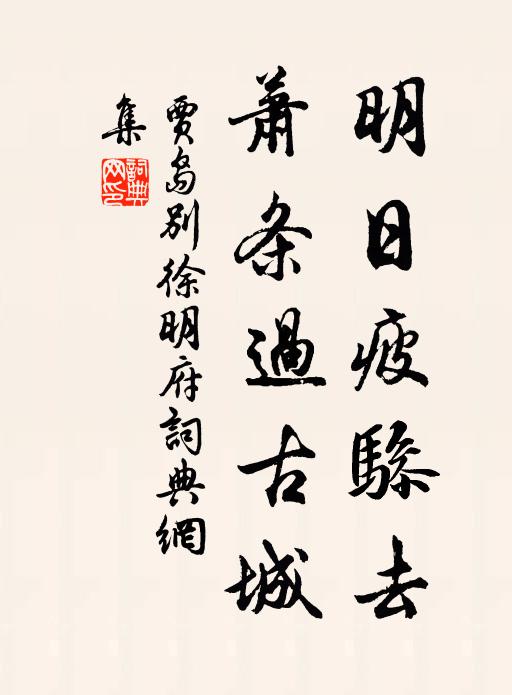 明日疲骖去
萧条過古城
賈島别徐明府詞典網
集
詞典網印